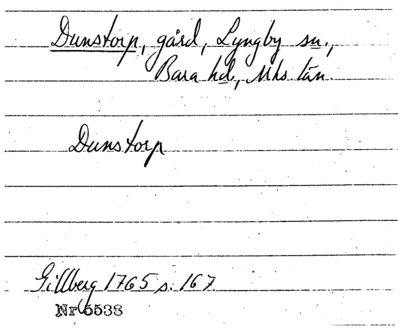 Dunstorp, gård, Lyngby sn.,
Bara hd, Mhs. län.
Dunstorp
Gillberg 1765 s. 167
Nr 5538